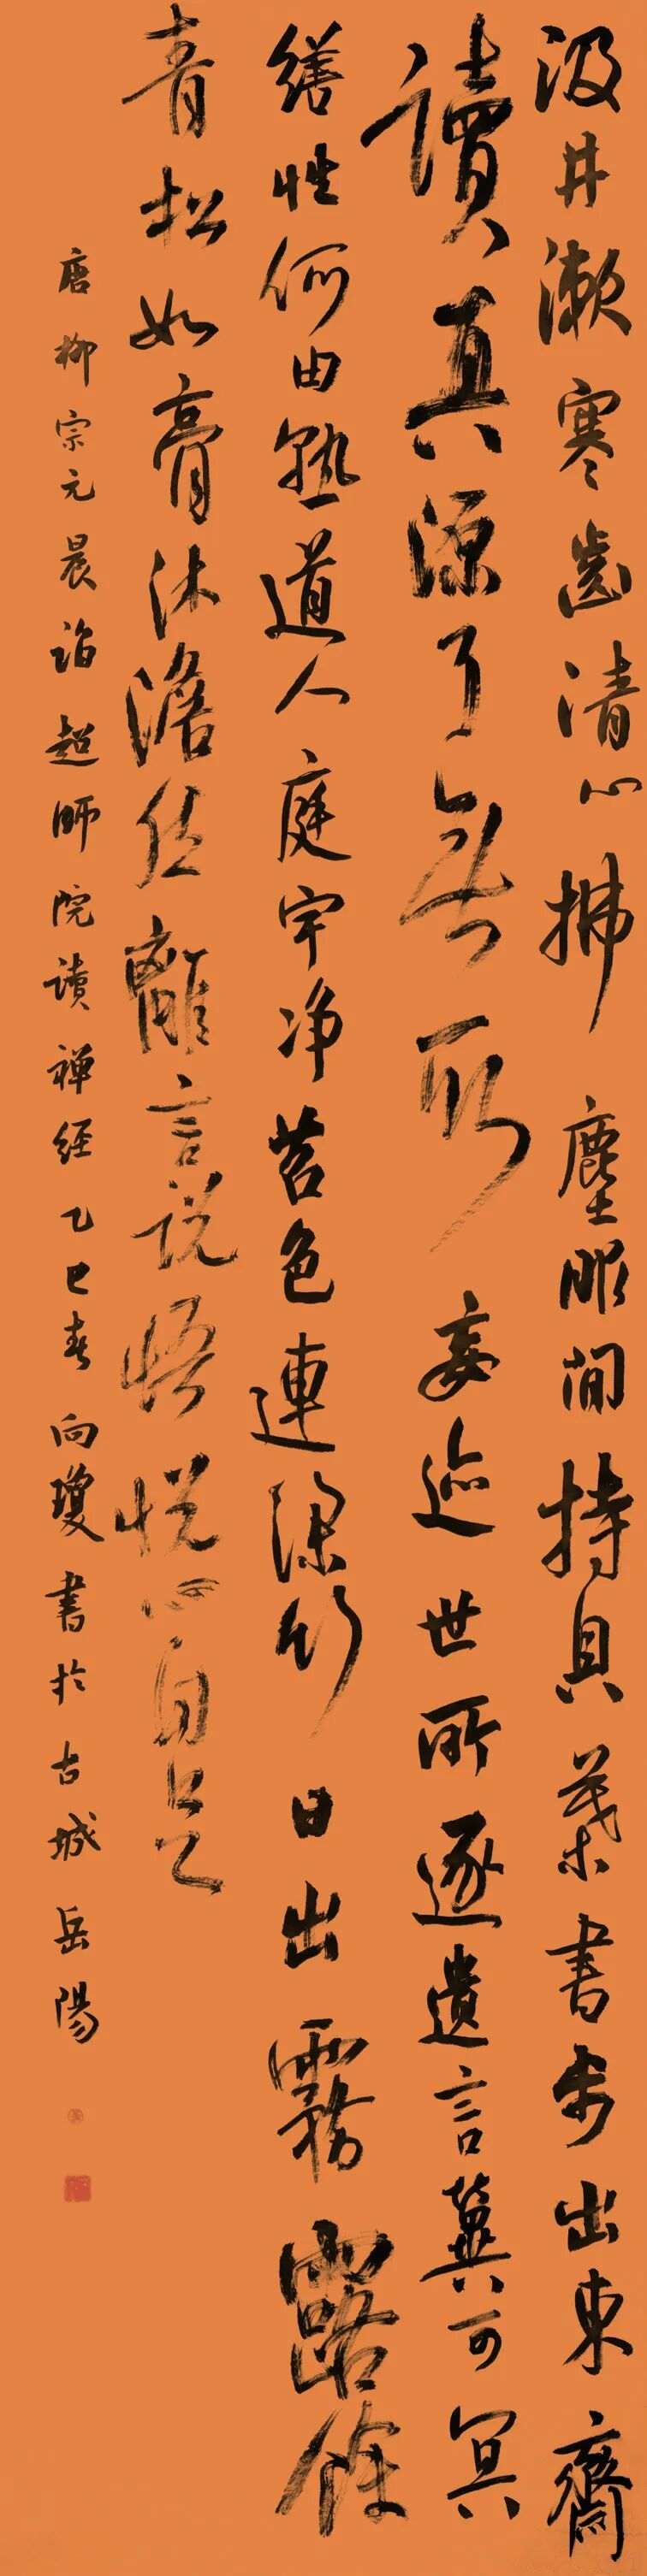 汲井漱寒齒清心拂塵服閒持貝葉書步出東齋
讀真源了無取妄迹世所逐遺言冀可冥
繕性何由熟道人庭宇净苔色連深竹日出霧露餘
青松如膏沐澹然離言説悟悦心自足
唐柳宗元晨詣超師院讀禅經乙巳春向瓊書於古城岳陽